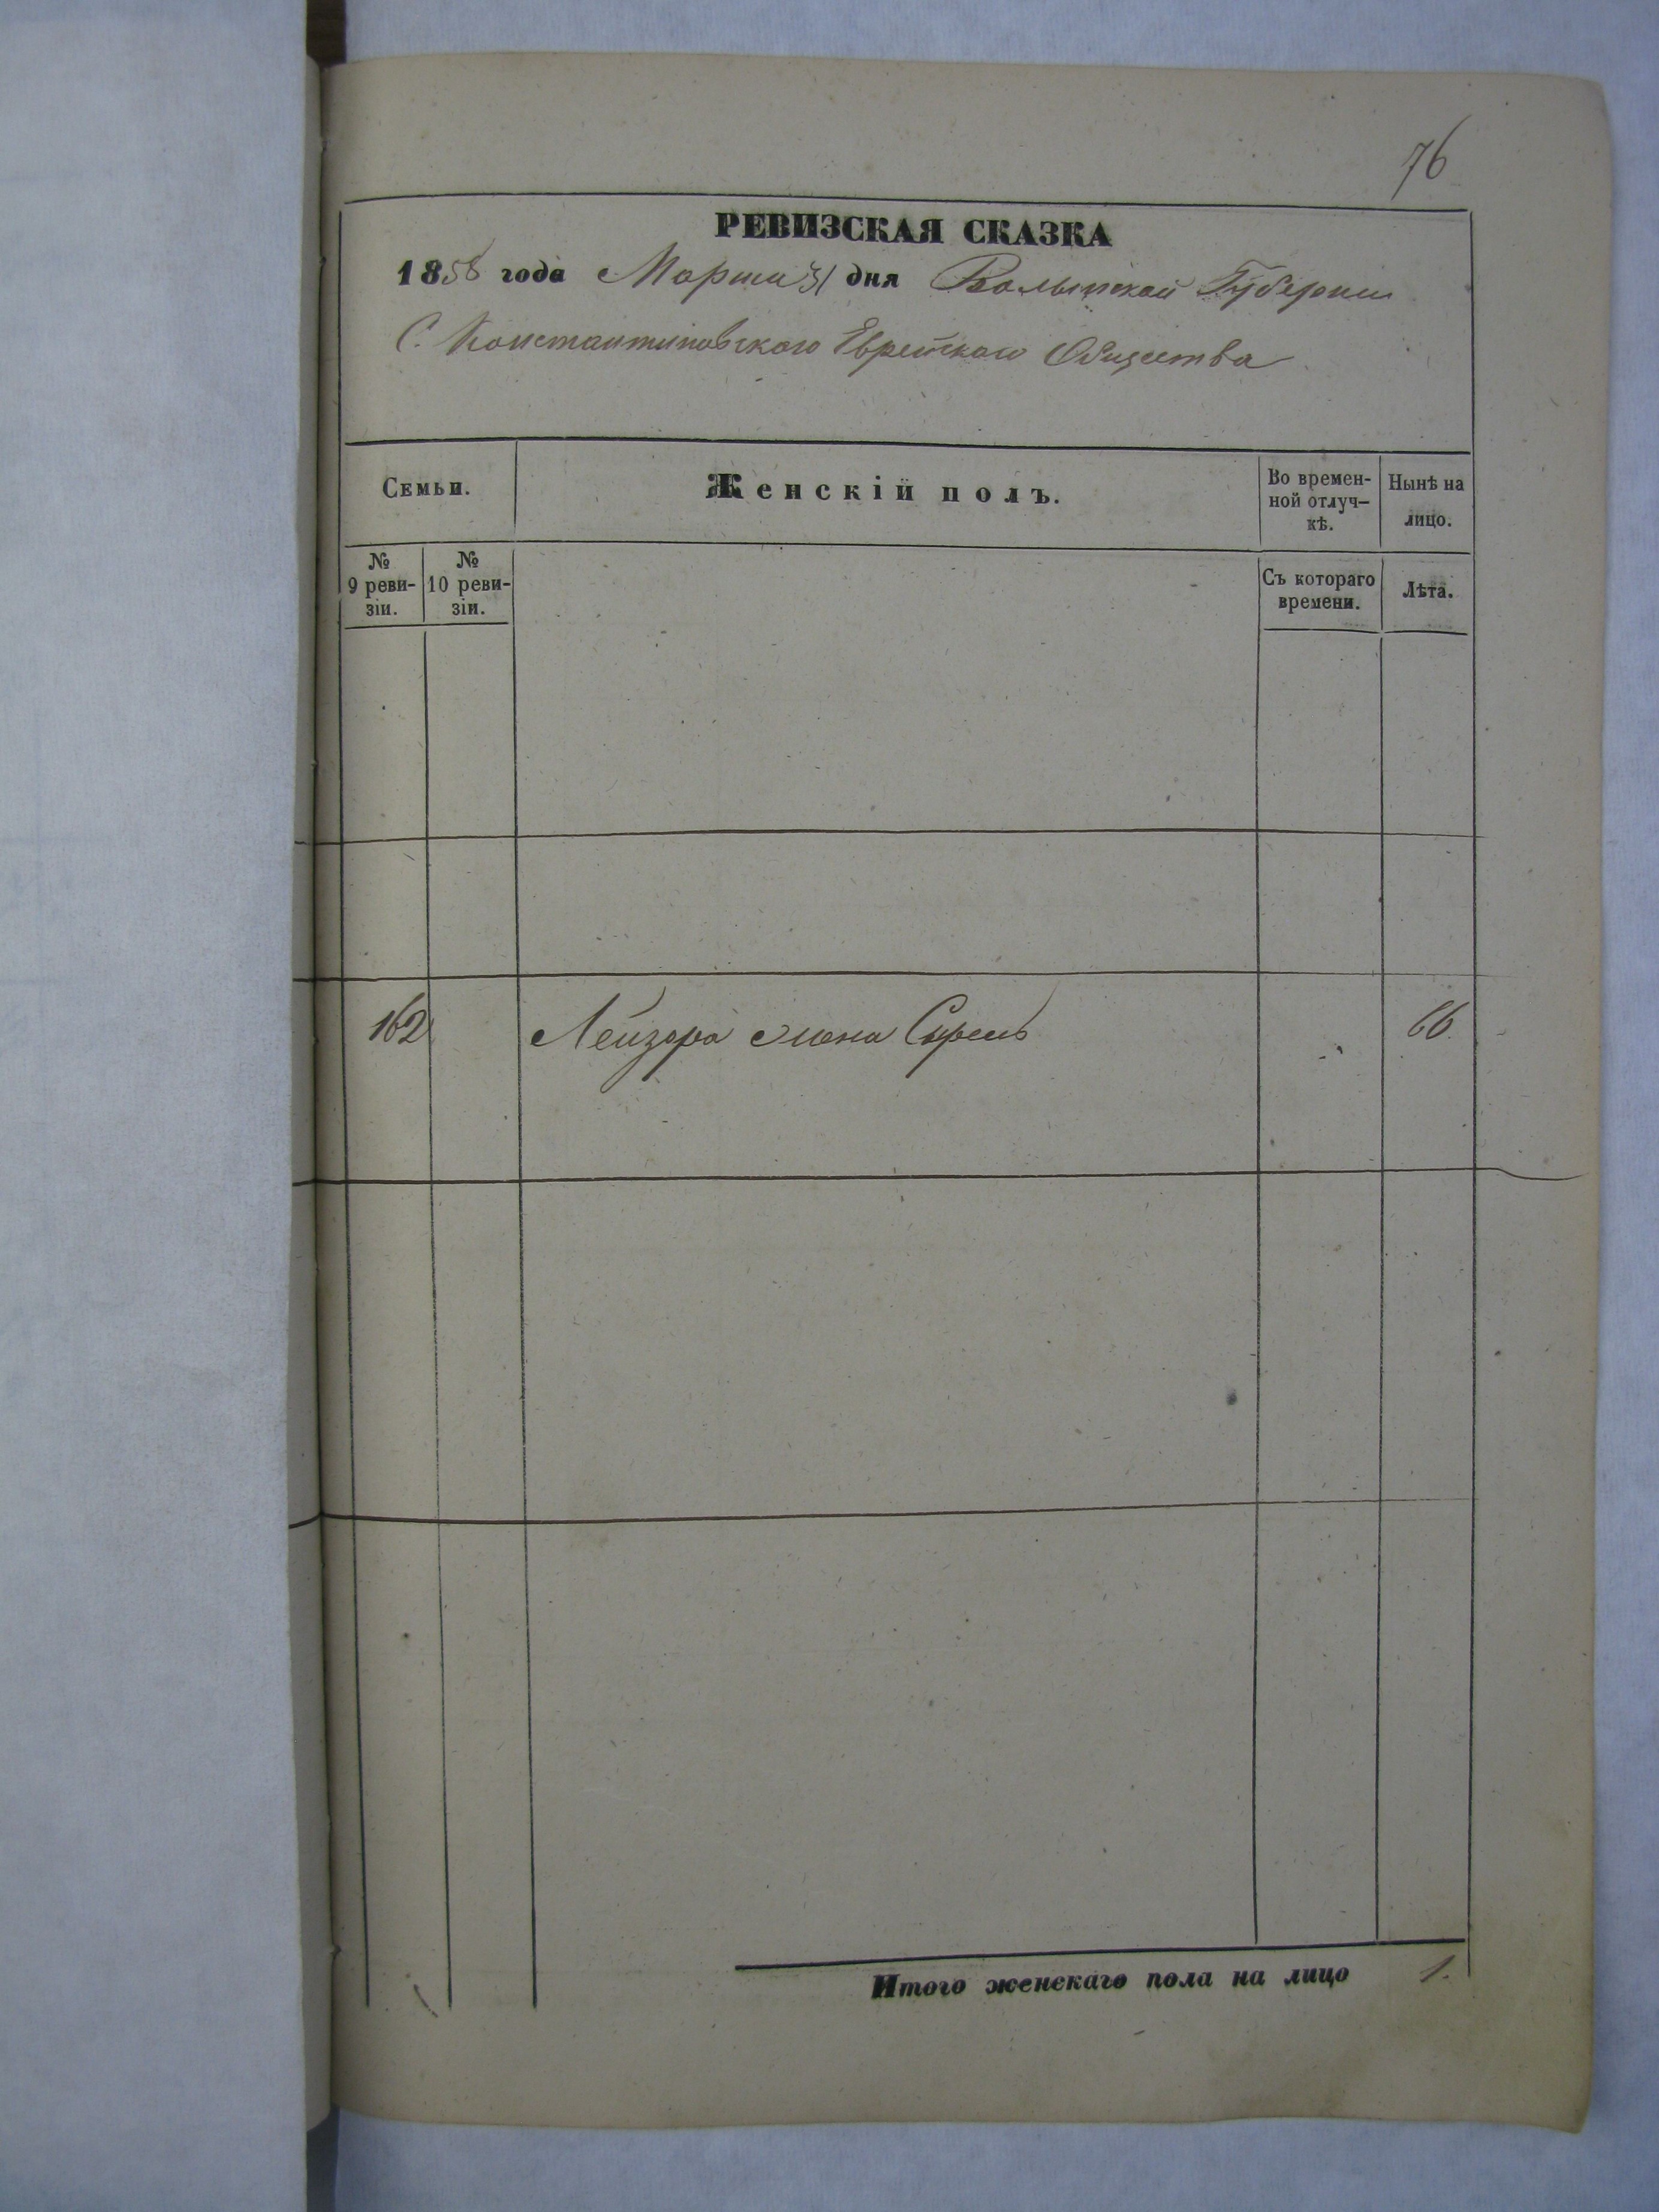 76
РЕВИЗСКАЯ СКАЗКА
1858 года Марта 31 дня Волынской Губернии
С. Константиновского Еврейскаго Общества
Семьи.
Женскій полъ.
Во времен-
ной отлуч-
кѣ.
Нынѣ на
лицо.
№
9 реви-
зіи.
№
10 реви-
зіи.
Съ котораго
времени.
Лѣта.
162
Лейзора жена Сурель
66
Итого женскаго пола на лицо 1.